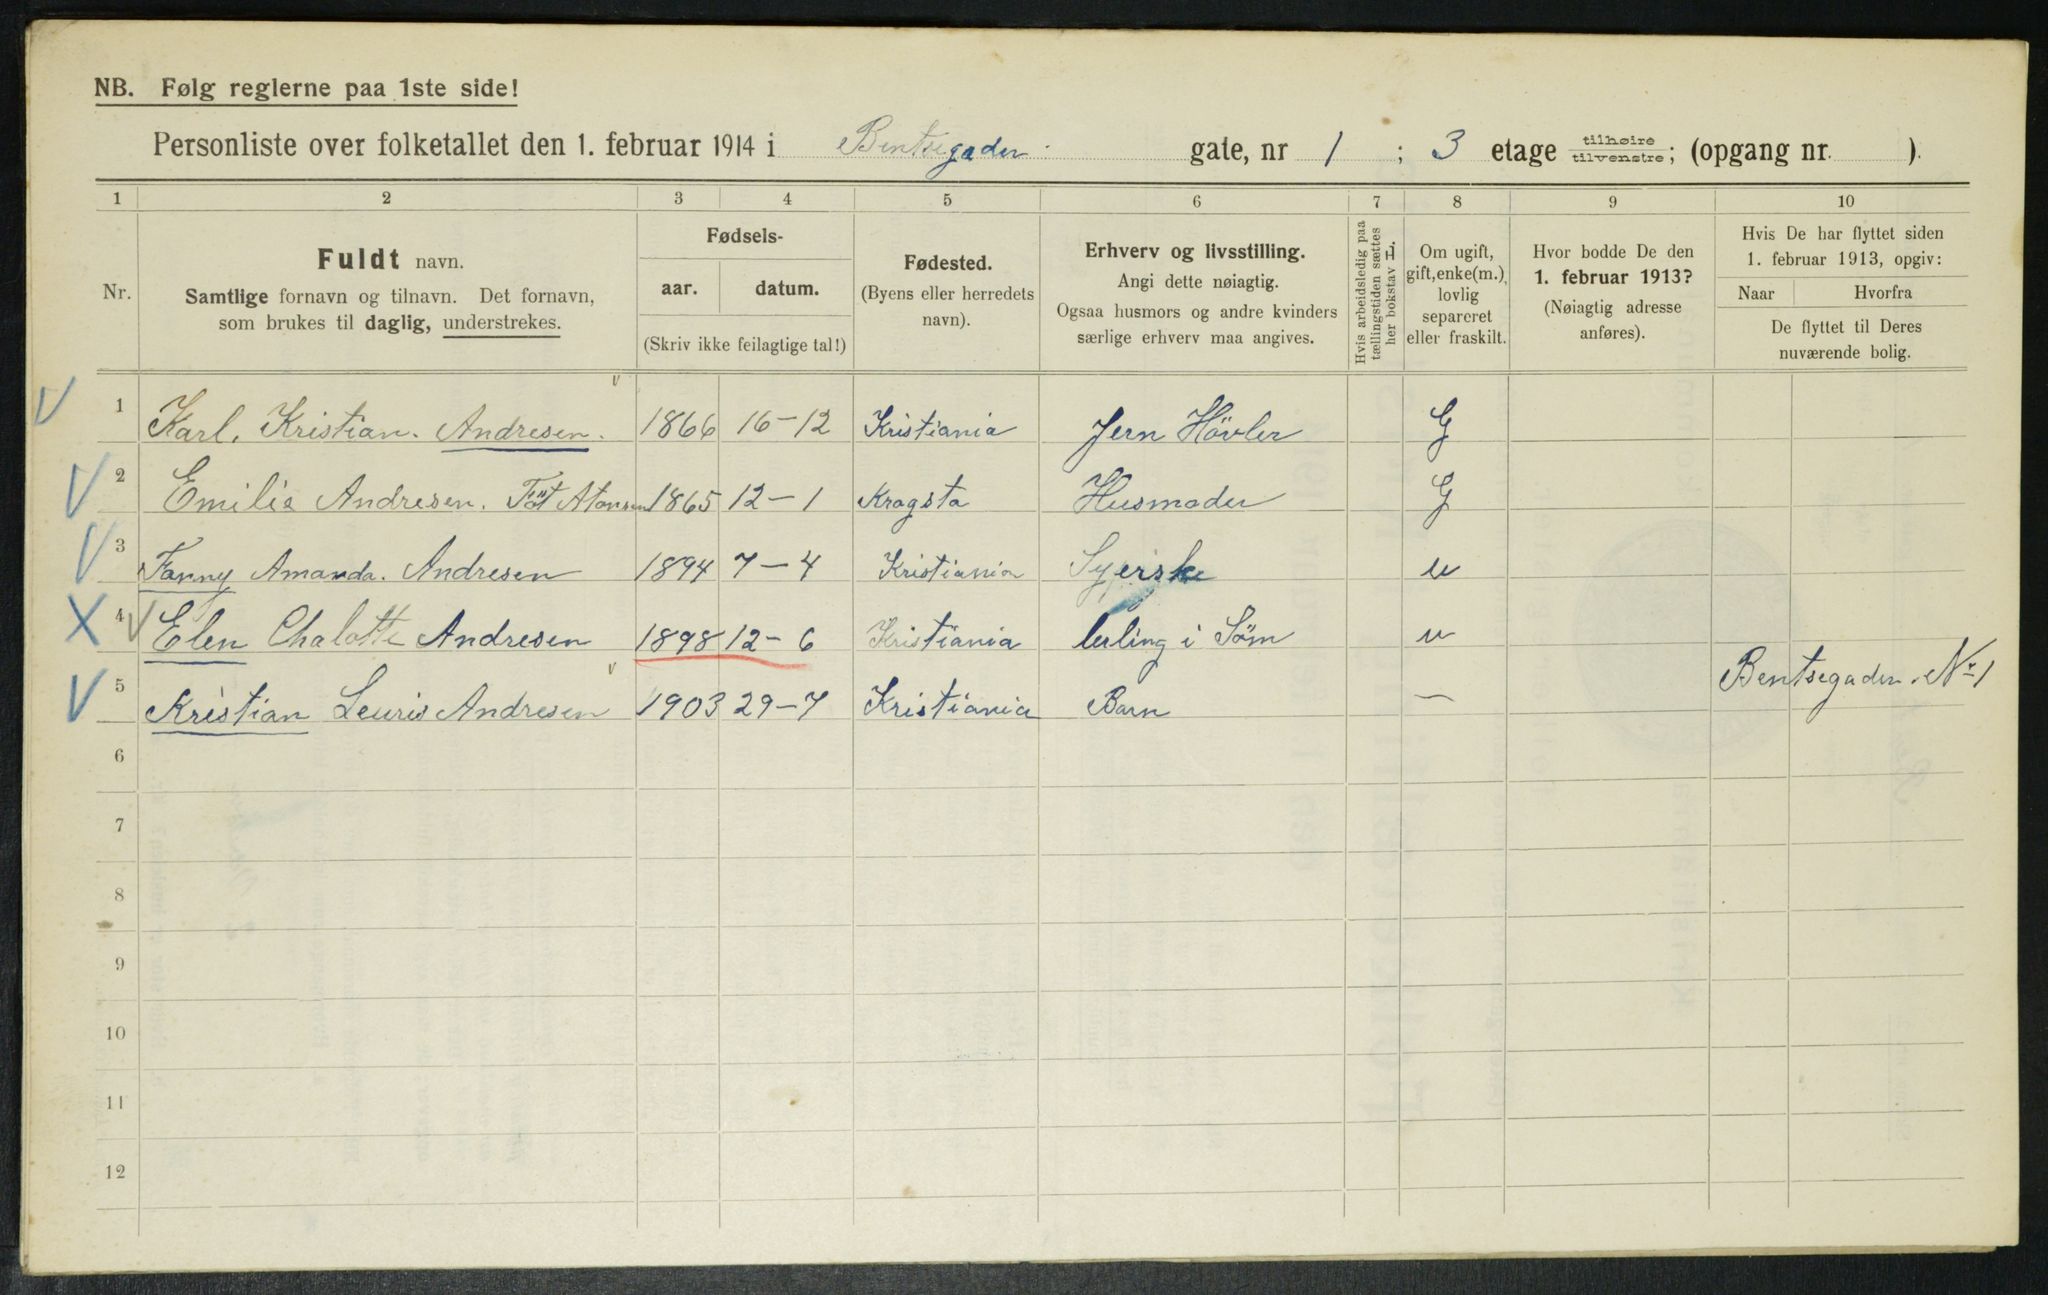 NB. Følg reglerne paa 1ste side!
Personliste over folketallet den 1. februar 1914 i Bentsegaden gate, nr 1 ; 3 etage tilhøire tilvenstre; (opgang nr. ).
1 2 3 4 5 6 7 8 9 10
Nr.
Fuldt navn.
Samtlige fornavn og tilnavn. Det fornavn,
som brukes til daglig, understrekes.
Fødsels-
aar. datum.
(Skriv ikke feilagtige tal!)
Fødested.
(Byens eller herredets
navn).
Erhverv og livsstilling.
Angi dette nøiagtig.
Ogsaa husmors og andre kvinders
særlige erhverv maa angives.
Hvis arbeidsledig paa
tællingstiden sættes
her bokstav L.
Om ugift,
gift, enke(m.),
lovlig
separeret
eller fraskilt.
Hvor bodde De den
1. februar 1913?
(Nøiagtig adresse
anføres).
Hvis De har flyttet siden
1. februar 1913, opgiv:
Naar Hvorfra
De flyttet til Deres
nuværende bolig.
1 Karl. Kristian. Andresen. 1866 16-12 Kristiania Jern Hövler G
2 Emilie Andresen. Föt 1865 12-1 Kragsta Husmoder G
3 Fanny Amanda. Andresen 1894 7-4 Kristiania Syerske u
4 Elen Chalotte Andresen 1898 12-6 Kristiania lerling i Söm u
5 Kristian Leuris Andresen 1903 29-7 Kristiania Barn — Bentsegaden. No 1
6
7
8
9
10
11
12